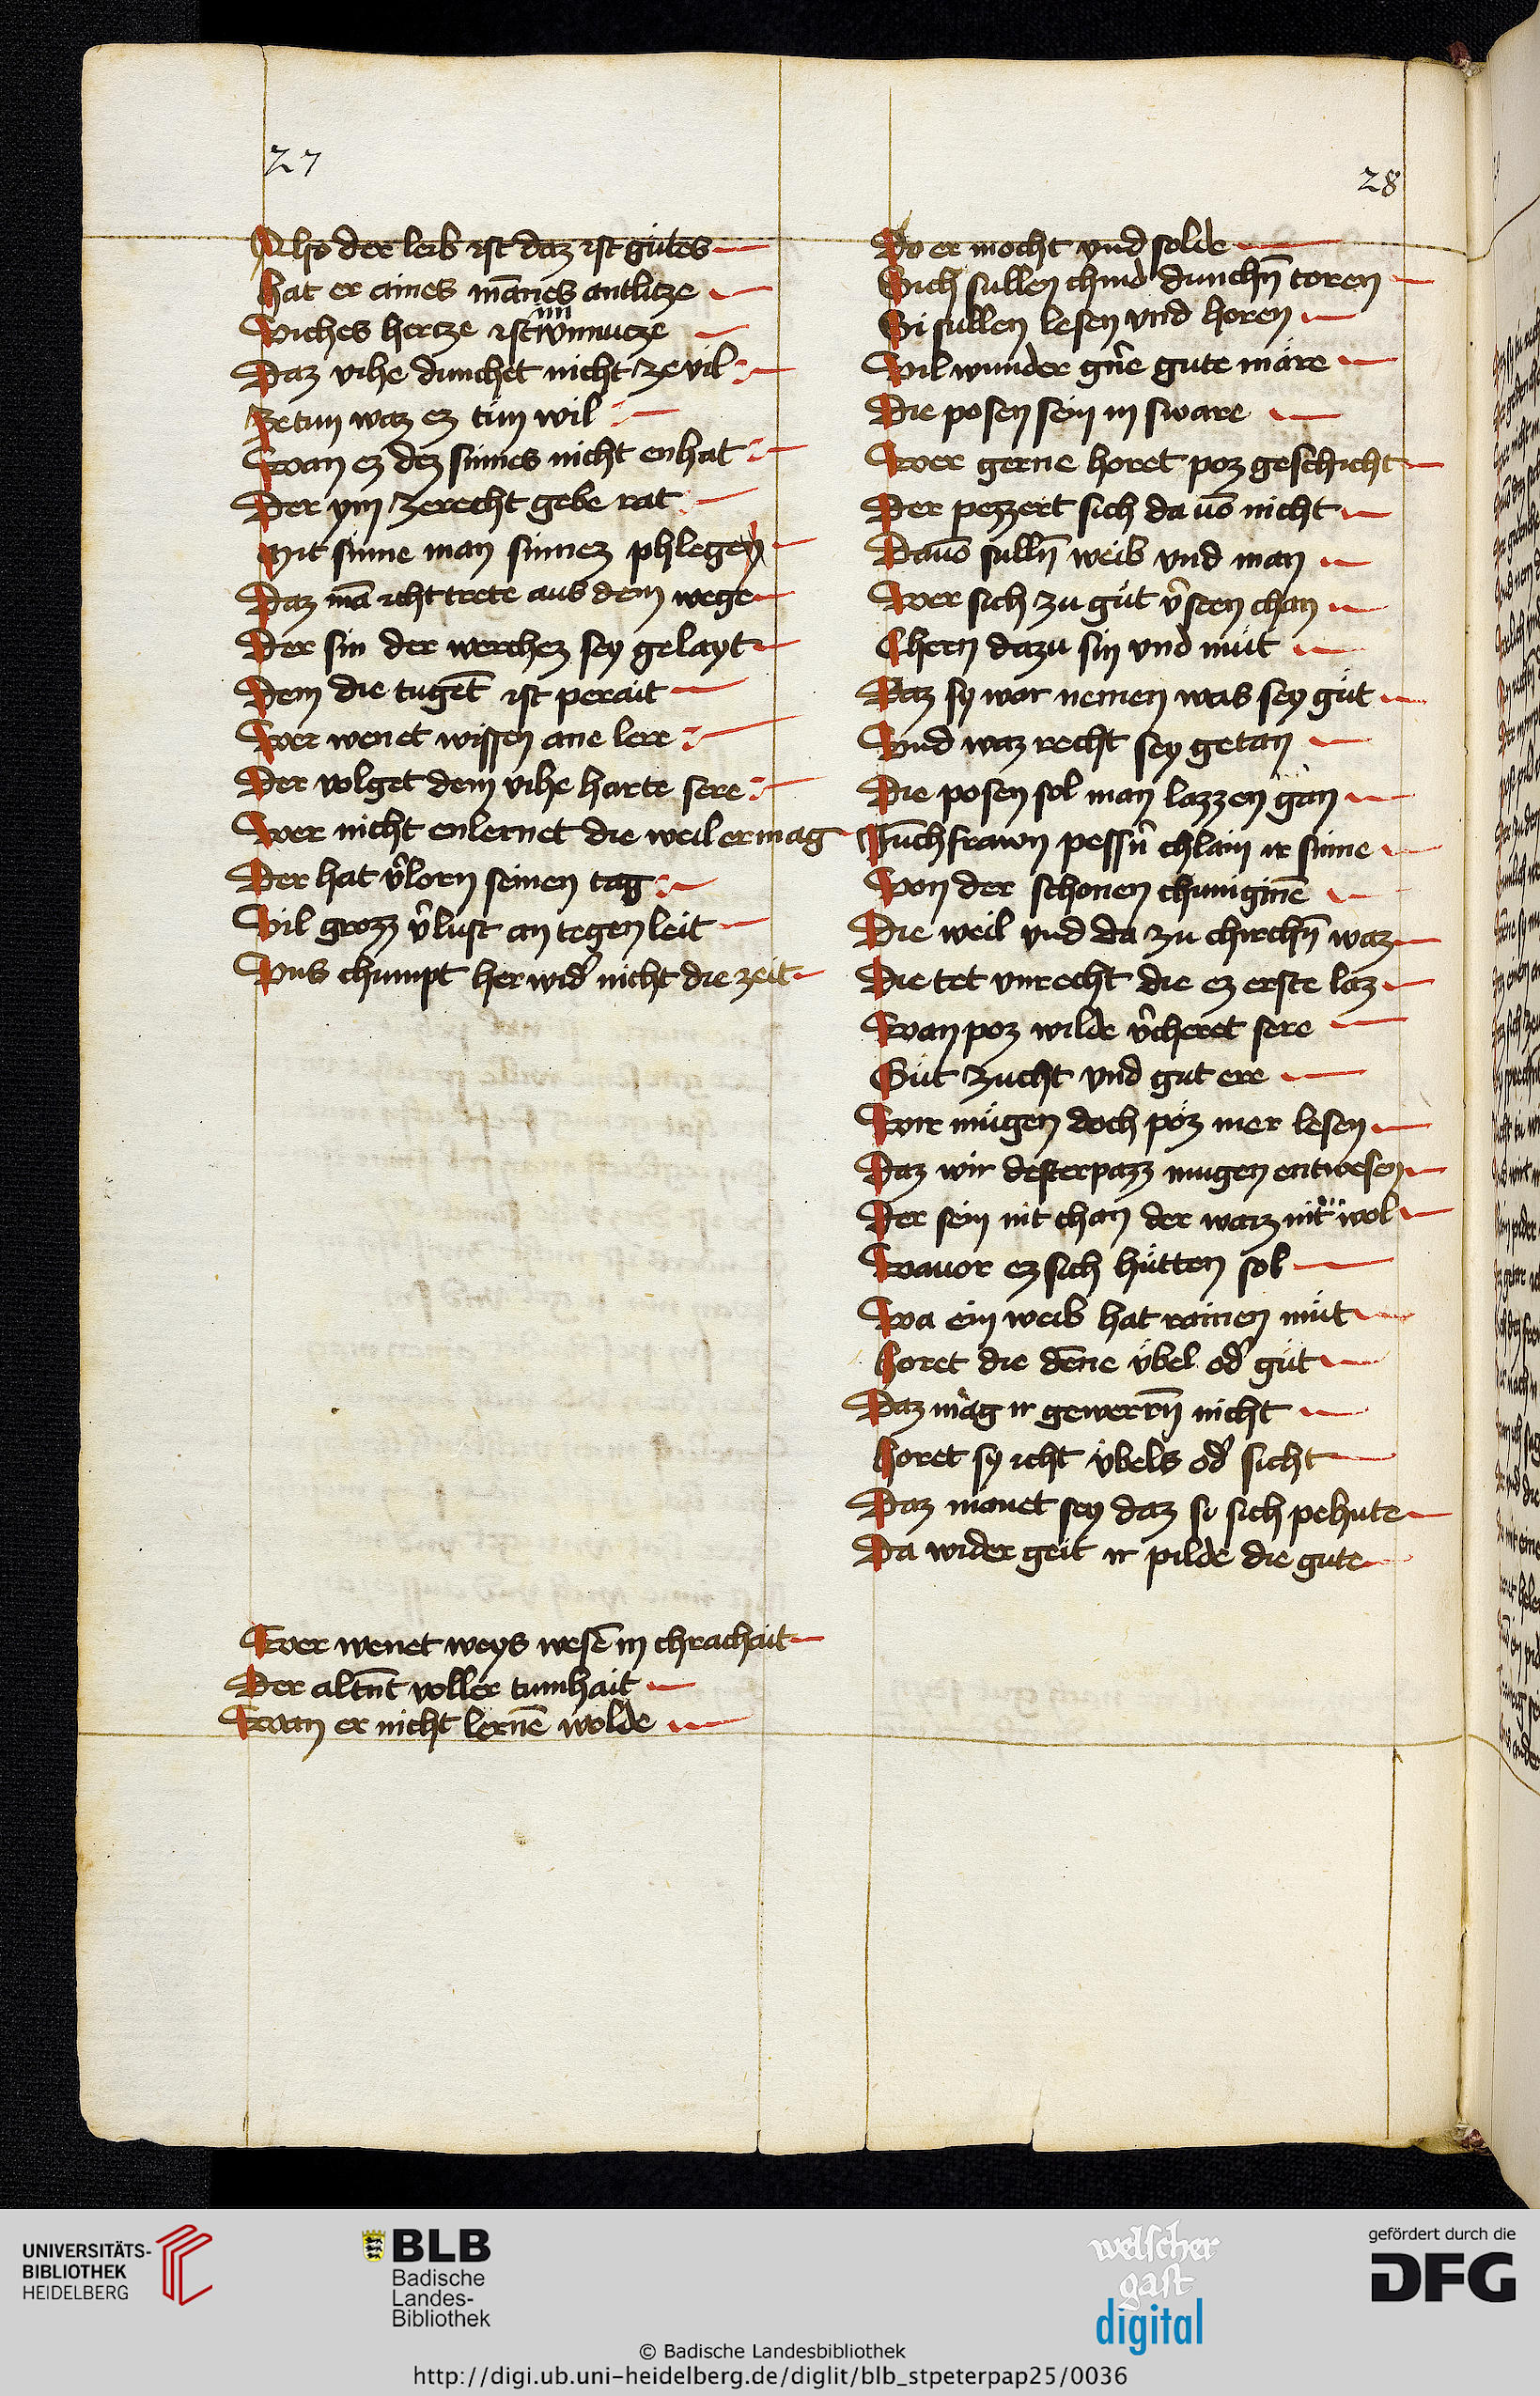 27
Also der leib ist daz ist gůtes
Hat er aines mānes antlicze
Viches hercze ist vnnucze
Daz vihe dunchet nicht ze vil
Ze tun waz ez tun wil
Wan ez dez sinnes nicht enhat
Der ym zerecht gebe rat
Mit sinne man sinnez phlegen
Daz mā icht trete aus dem wege
Der sin der werchez sey gelayt
Dem die tugēt ist perait
Wer wenet wissen ane lere
Der volget dem vihe harte sere
Wer nicht enlernet die weil er mag
Der hat v̉lorn seinen tag
Vil grozz v̉lust an tegen leit
Vns chumpt her wid̉ nicht die zeit
Wer wenet weys wesē in chrachait
Der altn̄t voller tumhait
Wan er nicht lernē wolde
28
Do er mocht vnd solde
Sich sullen chind dunchn̄ toren
Si sullen lesen vnd horen
Vil wunder gn̉e gute märe
Die posen sein in sware
Wer gerne horet poz geschicht
Der pezzert sich da uō nicht
Dauō sulln̄ weib vnd man
Wer sich zu gůt v̉sten chan
Chern dazu sin vnd můt
Daz sy war nemen was sey gůt
Vnd waz recht sey getan
Die posen sol man lazzen gan
Iūchfrawn pessn̉ chlain ir sinne
Von der schonen chuniginē
Die weil vnd da zu chirchn̄ waz
Die tet vnrecht die ez erste laz
Wan poz wilde v̉cheret sere
Gůt zucht vnd gut ere
Wir můgen doch poz mer lesen
Daz wir desterpazz mugen entwesen
Der sein nit chan der waiz nit wol
Wauor ez sich hůtten sol
Wa ein weib hat rainen můt
Horet die dēne übel od̉ gůt
Daz mag ir gewerrn̄ nicht
Horet sy icht übels od̉ sicht
Daz manet sey daz si sich pehute
Da wider geit ir pilde die gute
UNIVERSITÄTS-
BIBLIOTHEK
HEIDELBERG
BLB
Badische
Landes-
Bibliothek
welscher
gast
digital
gefördert durch die
DFG
© Badische Landesbibliothek
http://digi.ub.uni-heidelberg.de/diglit/blb_stpeterpap25/0036